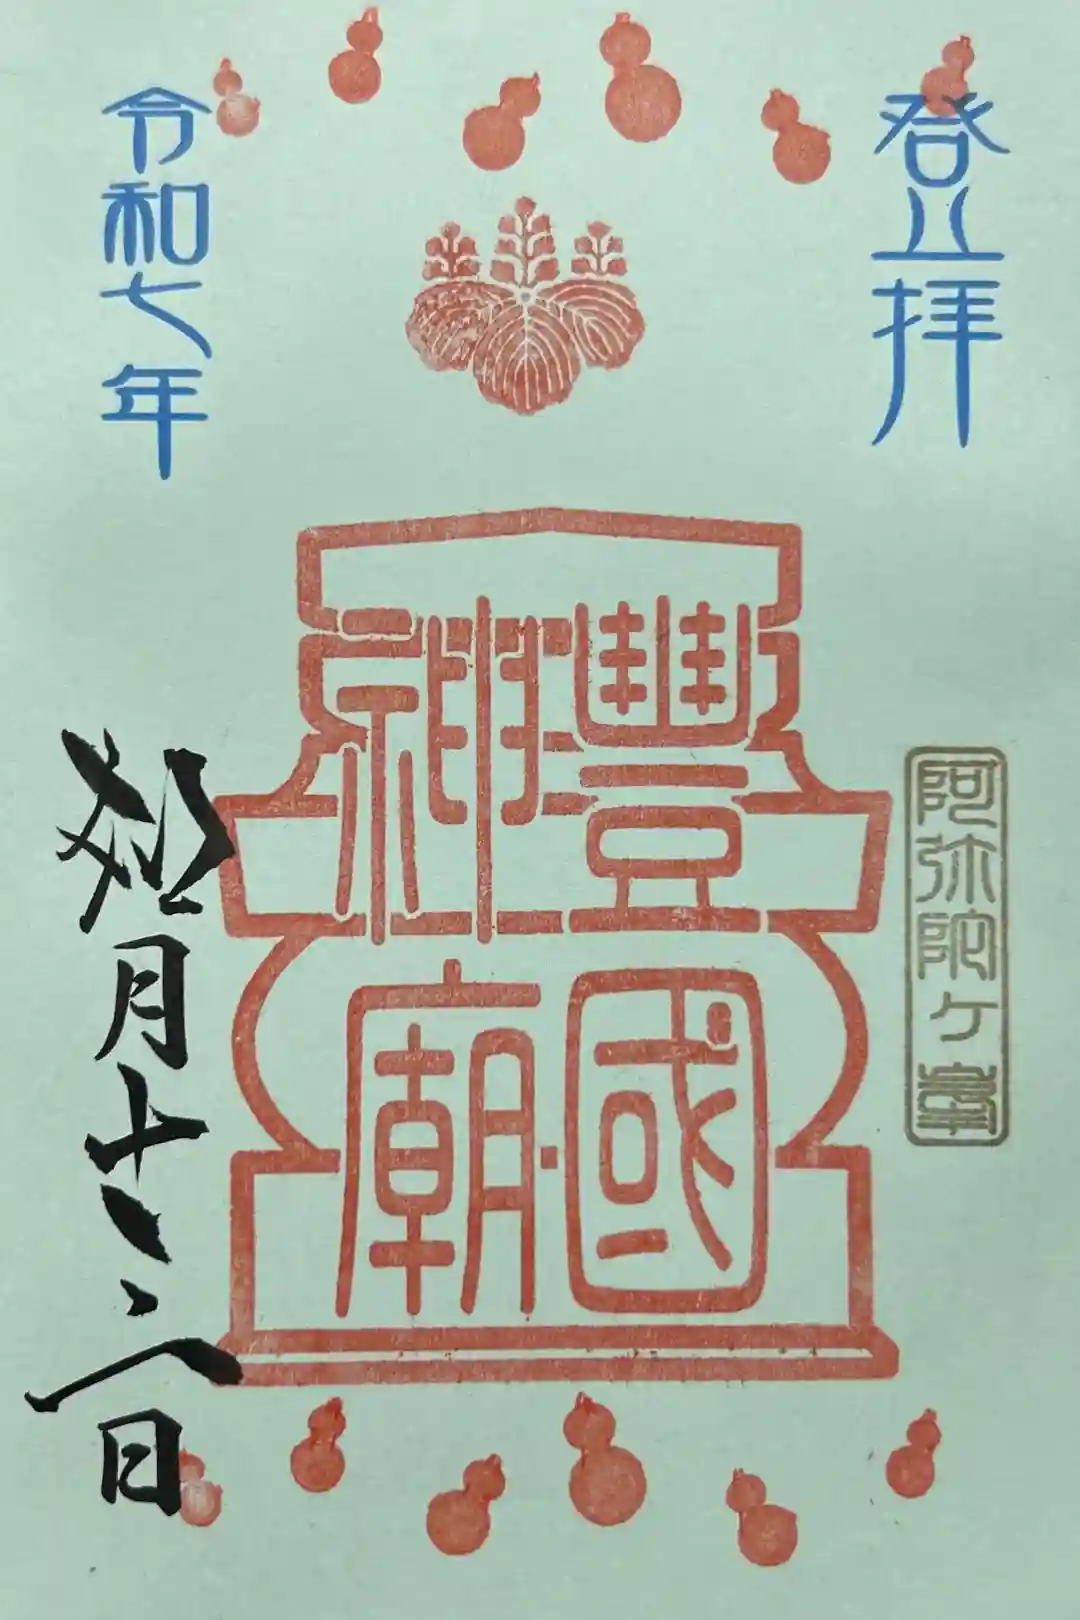 登拝
阿弥陀ヶ峯
豐國
神廟
令和七年
月十
日